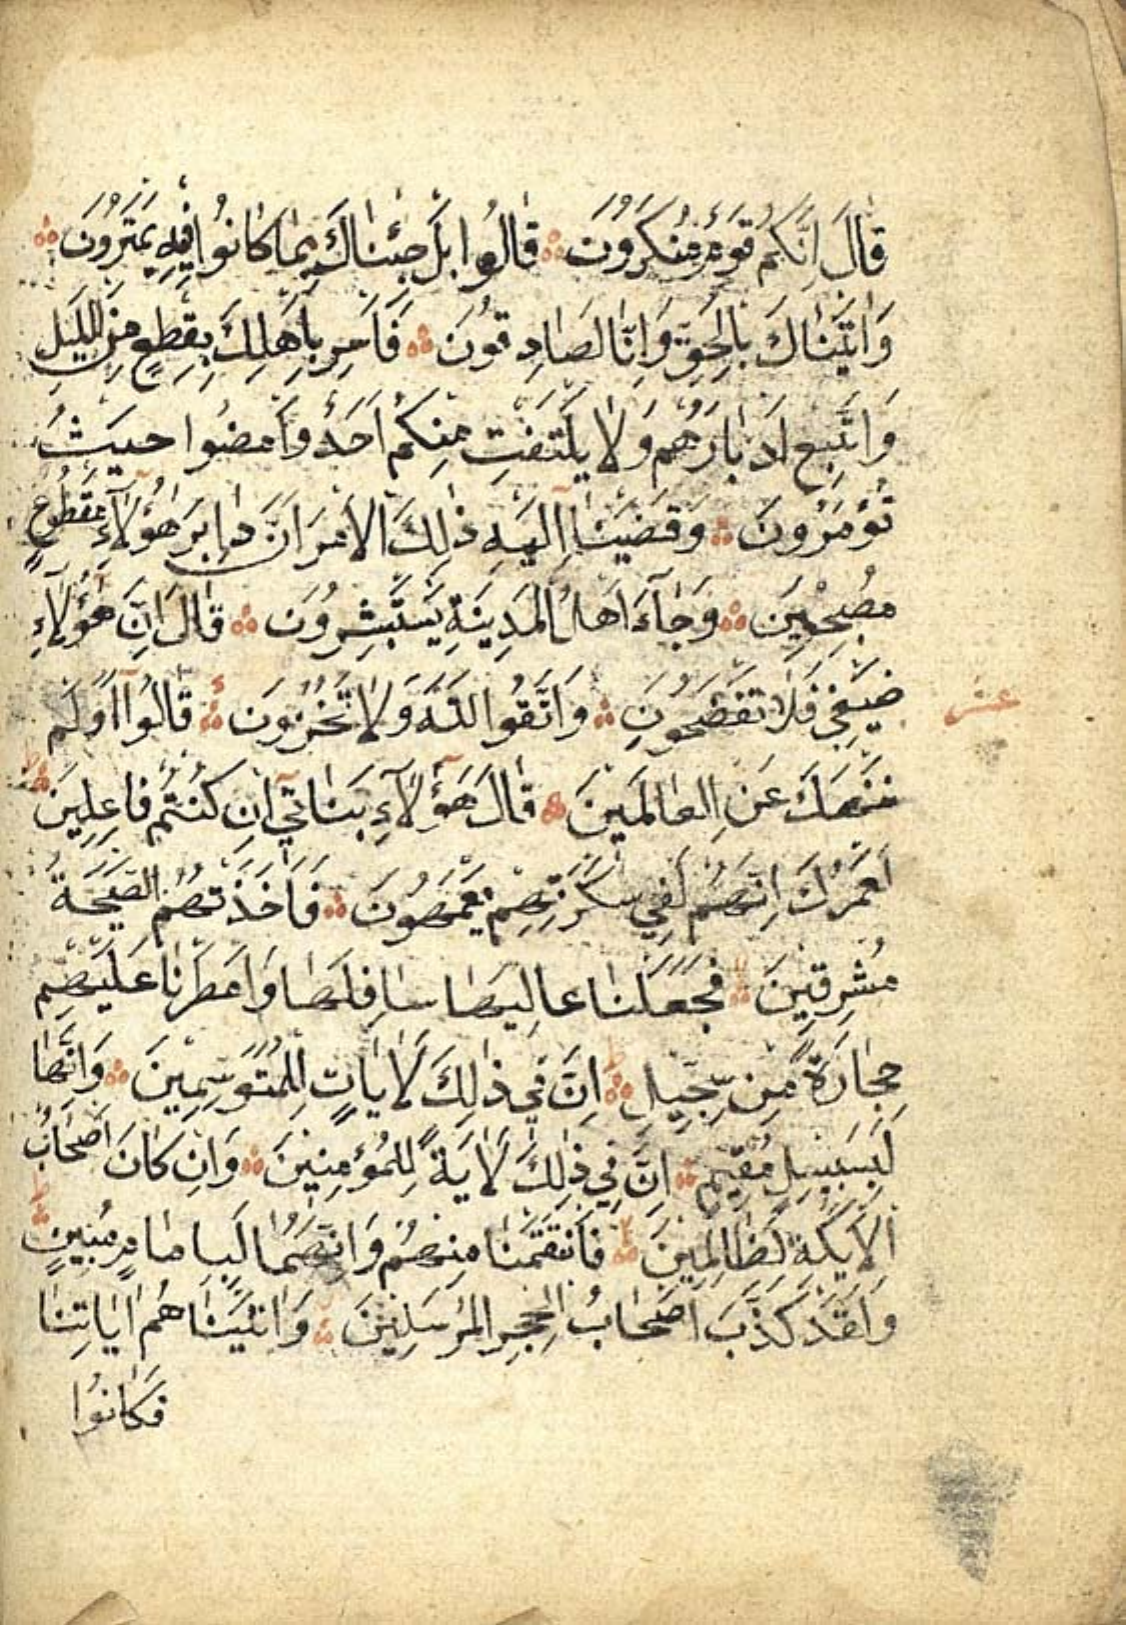 قَالَ اِنَّكُمْ قَوْمٌ مُنْكَرُونَ ۞ قَالُوا بَلْ جِئْنَاكَ بِمَا كَانُوا فِيهِ يَمْتَرُونَ ۞
وَاَتَيْنَاكَ بِالْحَقِّ وَاِنَّا لَصَادِقُونَ ۞ فَاَسْرِ بِاَهْلِكَ بِقِطْعٍ مِنَ اللَّيْلِ
وَاتَّبِعْ اَدْبَارَهُمْ وَلَا يَلْتَفِتْ مِنْكُمْ اَحَدٌ وَامْضُوا حَيْثُ
تُؤْمَرُونَ ۞ وَقَضَيْنَا اِلَيْهِ ذٰلِكَ الْاَمْرَ اَنَّ دَابِرَ هٰؤُلَآءِ مَقْطُوعٌ
مُصْبِحِينَ ۞ وَجَآءَ اَهْلُ الْمَدِينَةِ يَسْتَبْشِرُونَ ۞ قَالَ اِنَّ هٰؤُلَآءِ
ضَيْفِي فَلَا تَفْضَحُونِ ۞ وَاتَّقُوا اللّٰهَ وَلَا تُخْزُونِ ۞ قَالُوا اَوَلَمْ
عشر
نَنْهَكَ عَنِ الْعَالَمِينَ ۞ قَالَ هٰؤُلَآءِ بَنَاتِي اِنْ كُنْتُمْ فَاعِلِينَ ۞
لَعَمْرُكَ اِنَّهُمْ لَفِي سَكْرَتِهِمْ يَعْمَهُونَ ۞ فَاَخَذَتْهُمُ الصَّيْحَةُ
مُشْرِقِينَ ۞ فَجَعَلْنَا عَالِيَهَا سَافِلَهَا وَاَمْطَرْنَا عَلَيْهِمْ
حِجَارَةً مِنْ سِجِّيلٍ ۞ اِنَّ فِي ذٰلِكَ لَاٰيَاتٍ لِلْمُتَوَسِّمِينَ ۞ وَاِنَّهَا
لَبِسَبِيلٍ مُقِيمٍ ۞ اِنَّ فِي ذٰلِكَ لَاٰيَةً لِلْمُؤْمِنِينَ ۞ وَاِنْ كَانَ اَصْحَابُ
الْاَيْكَةِ لَظَالِمِينَ ۞ فَانْتَقَمْنَا مِنْهُمْ وَاِنَّهُمَا لَبِاِمَامٍ مُبِينٍ ۞
وَلَقَدْ كَذَّبَ اَصْحَابُ الْحِجْرِ الْمُرْسَلِينَ ۞ وَاٰتَيْنَاهُمْ اٰيَاتِنَا
فَكَانُوا